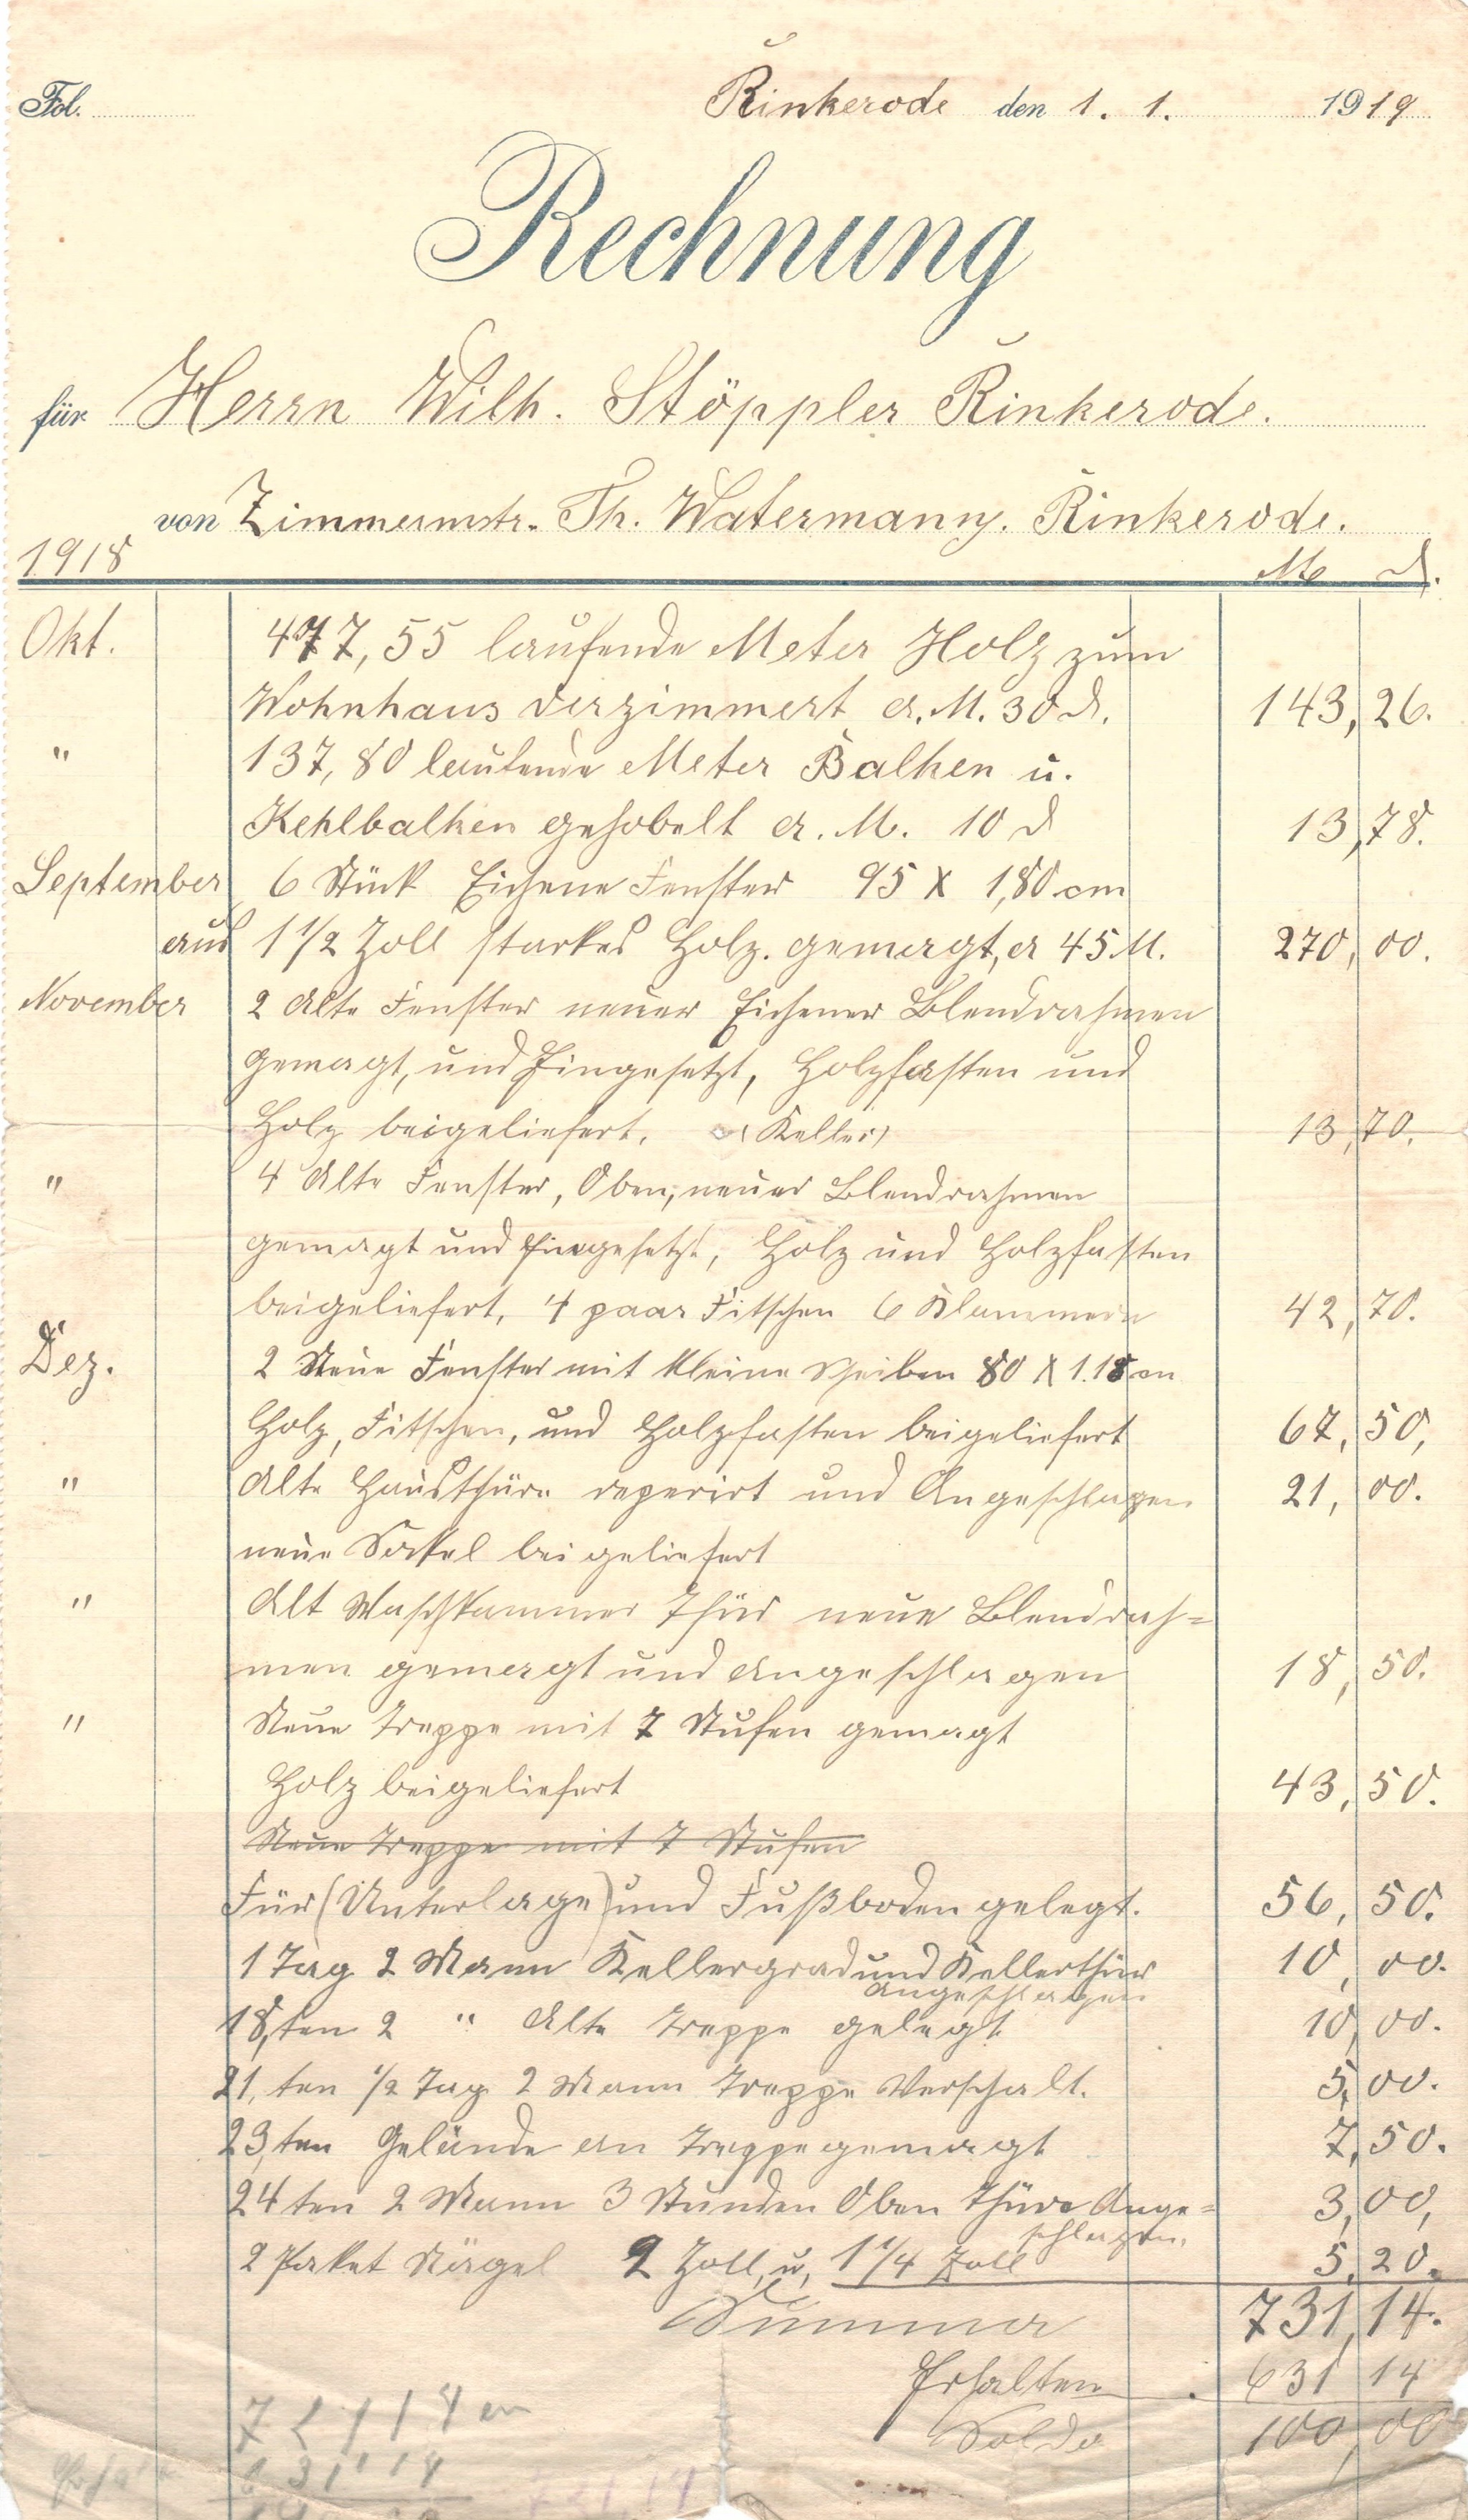 Fol. Rinkerode den 1. 1. 1919
Rechnung
für Herrn Wilh. Stöppler Rinkerode.
von Zimmermstr. Th. Watermann. Rinkerode.
1918 M d.
Okt. 477,55 laufende Meter Holz zum
Wohnhaus verzimmert a. M. 30 d. 143,26.
" 137,80 laufende Meter Balken u.
Kehlbalken gehobelt a. M. 10 d 13,78.
September 6 Stück Eichene Fenster 95 X 1,80 cm
aus 1 1/2 Zoll starkes Holz. gemagt, a 45 M. 270,00.
November 2 Alte Fenster neuer Eichener Blendrahmen
gemagt, und Eingesetzt, Holzfasten und
Holz beigeliefert. (Keller) 13,70.
" 4 Alte Fenster, Oben, neuer Blendrahmen
gemagt und Eingesetzt, Holz und Holzfasten
beigeliefert, 4 paar Fitschen 6 Klammern 42,70.
Dez. 2 Neue Fenster mit kleine Scheiben 80 X 1.18 cm
Holz, Fitschen, und Holzfasten beigeliefert 67,50,
" Alte Hausthüre reperirt und Angeschlagen 21,00.
neue Sockel beigeliefert
" Alt Waschkammer Thür neue Blendrah=
men gemagt und angeschlagen 18,50.
" Neue Treppe mit 7 Stufen gemagt
Holz beigeliefert 43,50.
Neue Treppe mit 7 Stufen
Für (Unterlage) und Fußboden gelegt. 56,50.
1 Tag 2 Mann Kellergrad und Kellerthür 10,00.
angeschlagen
18,ten 2 " Alte Treppe gelegt 10,00.
21,ten 1/2 Tag 2 Mann Treppe Verschalt. 5,00.
23,ten Gelände an Treppe gemagt 7,50.
24ten 2 Mann 3 Stunden Oben Thüre Ange= 3,00,
schlagen.
2 Paket Nägel 2 Zoll, u, 1 1/4 Zoll 5,20.
Summa 731,14.
Erhalten 631 14
Soldo 100,00
731 14
631 14